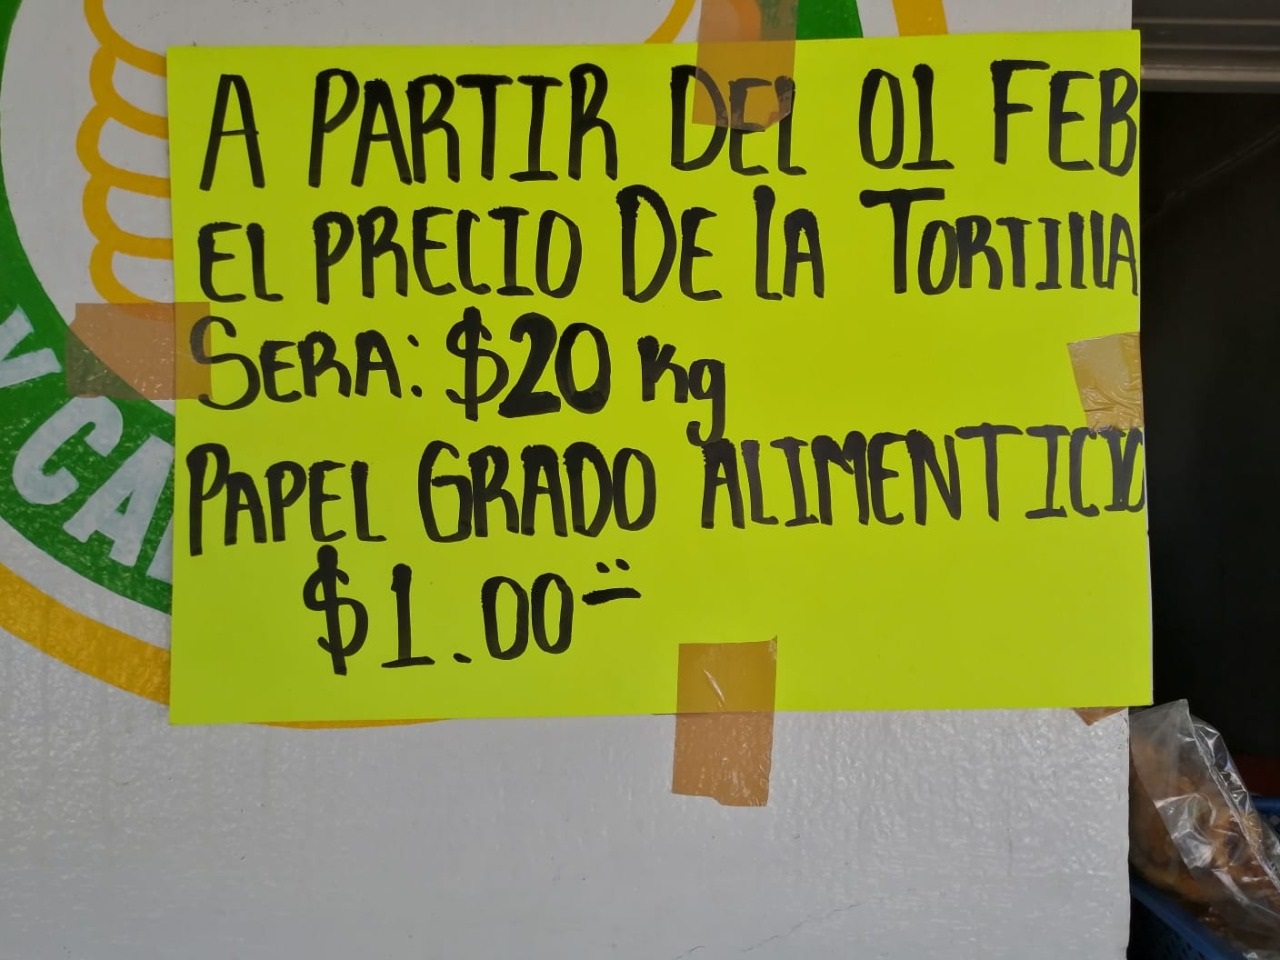 A PARTIR DEL 01 FEB
EL PRECIO DE LA TORTILLA
SERA: $20 Kg
PAPEL GRADO ALIMENTICIO
$1.00